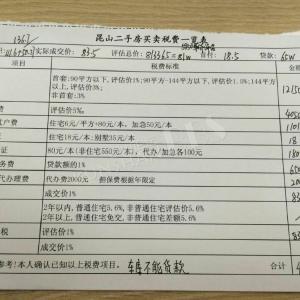 昆山二手房买卖税费一览表
实际成交价: 83.5 评估总价: 813365≈81W 首付: 18.5 贷款: 65W
项目 税费标准 金
首套:90平方以下,评估价1%;90平方-144平方以下,评估价1.5%;144平方以上,评估价3%;
非首套:3%
1215
评估价5‰ 405
住宅6元/平方+80元/本,加急50元/本
住宅18元/本;别墅35元/本 18
证 80元/本(非住宅550元/本),代办/加急各100元 180
务费 贷款额的1% 65
代办理费 代办费2000元 担保费根据年限定 200
成交价1% 83
2年以内,普通住宅5.6%,非普通住宅评估价5.6%
2年以上,普通住宅免交,非普通住宅差额5.6%
税 评估价1%
成交价1% 83
参考!本人确认已知以上税费项目。 车库不能贷款 合计 4